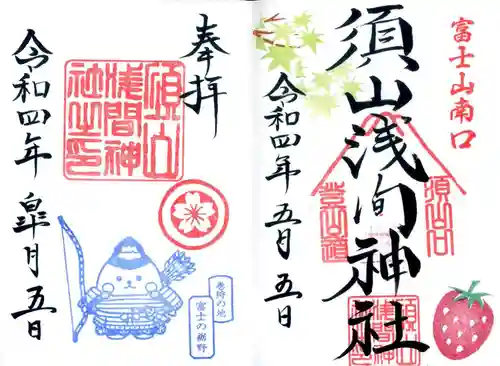 富士山南口
須山浅间神社
須山口
登山道
須山浅間神社之印
令和四年 五月 五日
奉拝
須山浅間神社之印
令和四年 皐月 五日
巻狩の地
富士の裾野